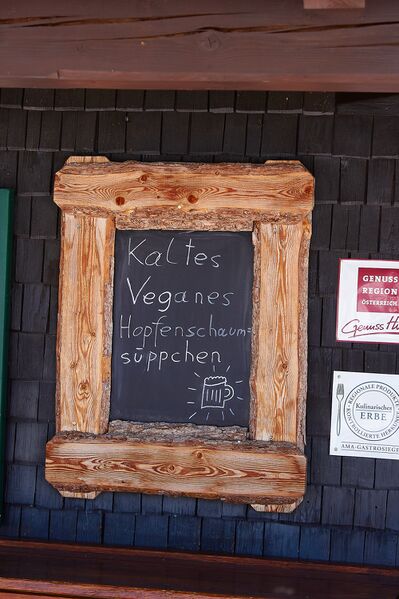 Kaltes
Veganes
Hopfenschaum=
süppchen
GENUSS
REGION
ÖSTERREICH
REGIONALE PRODUKTE
Kulinarisches
ERBE
KONTROLLIERTE
AMA-GASTROSIEGEL